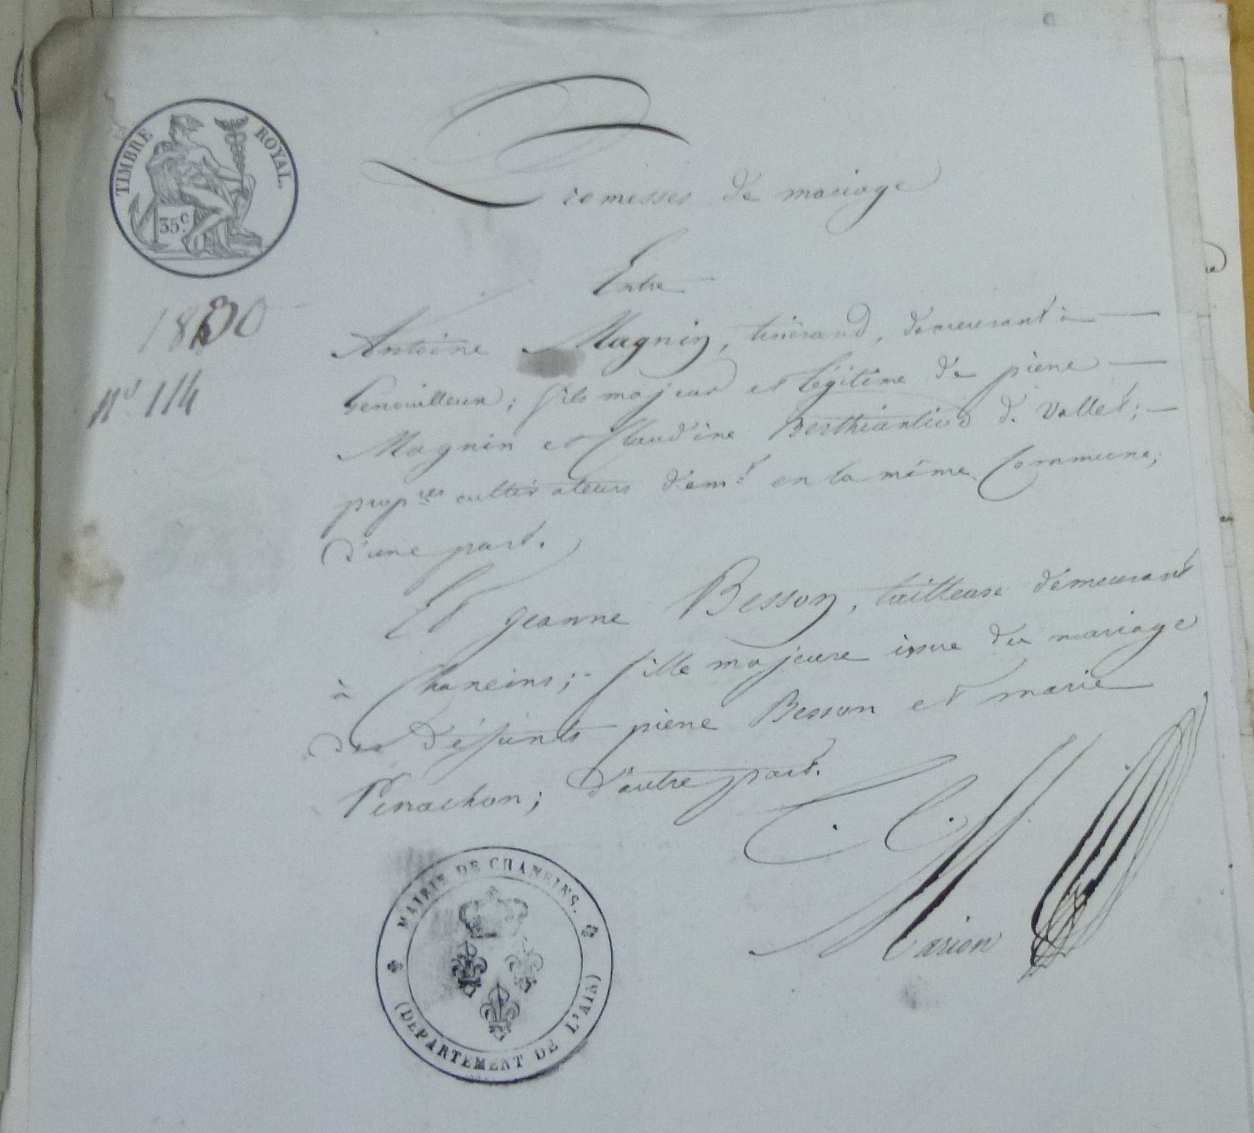 TIMBRE ROYAL.
35c
1830
No 114
Promesses de mariage
Entre
Antoine Magnin, tisserand, demeurant à
Genouilleux; fils majeur et légitime de pierre
Magnin et Claudine d. Vallet;
propres cultivateurs demt en la même Commune;
d'une part.
Et jeanne Besson, tailleuse demeurant
à Chaneins; fille majeure issue du mariage
des défunts pierre Besson et marie
Perrachon; d'autre part.
C. C. Marion
MAIRIE DE CHANEINS.
(DEPARTEMENT DE L'AIN)